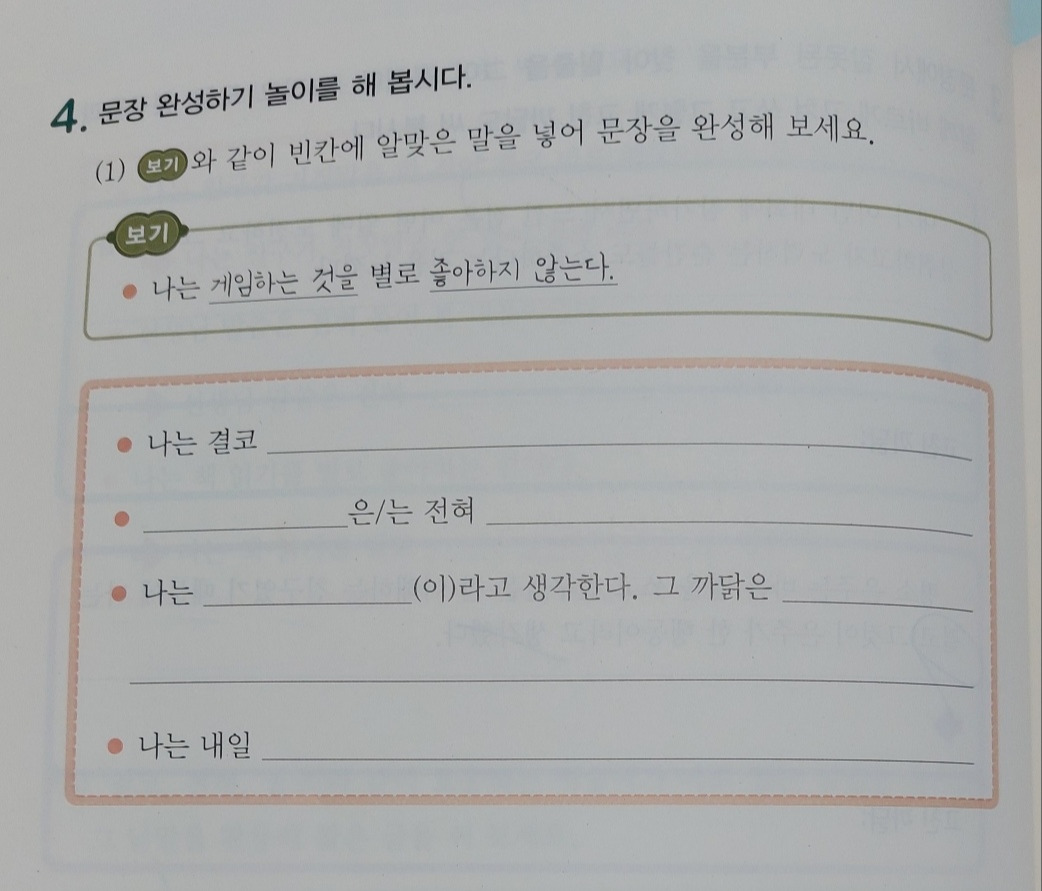 4. 문장 완성하기 놀이를 해 봅시다.
(1) 보기 와 같이 빈칸에 알맞은 말을 넣어 문장을 완성해 보세요.
보기
• 나는 게임하는 것을 별로 좋아하지 않는다.
• 나는 결코
• 은/는 전혀
• 나는 (이)라고 생각한다. 그 까닭은
• 나는 내일